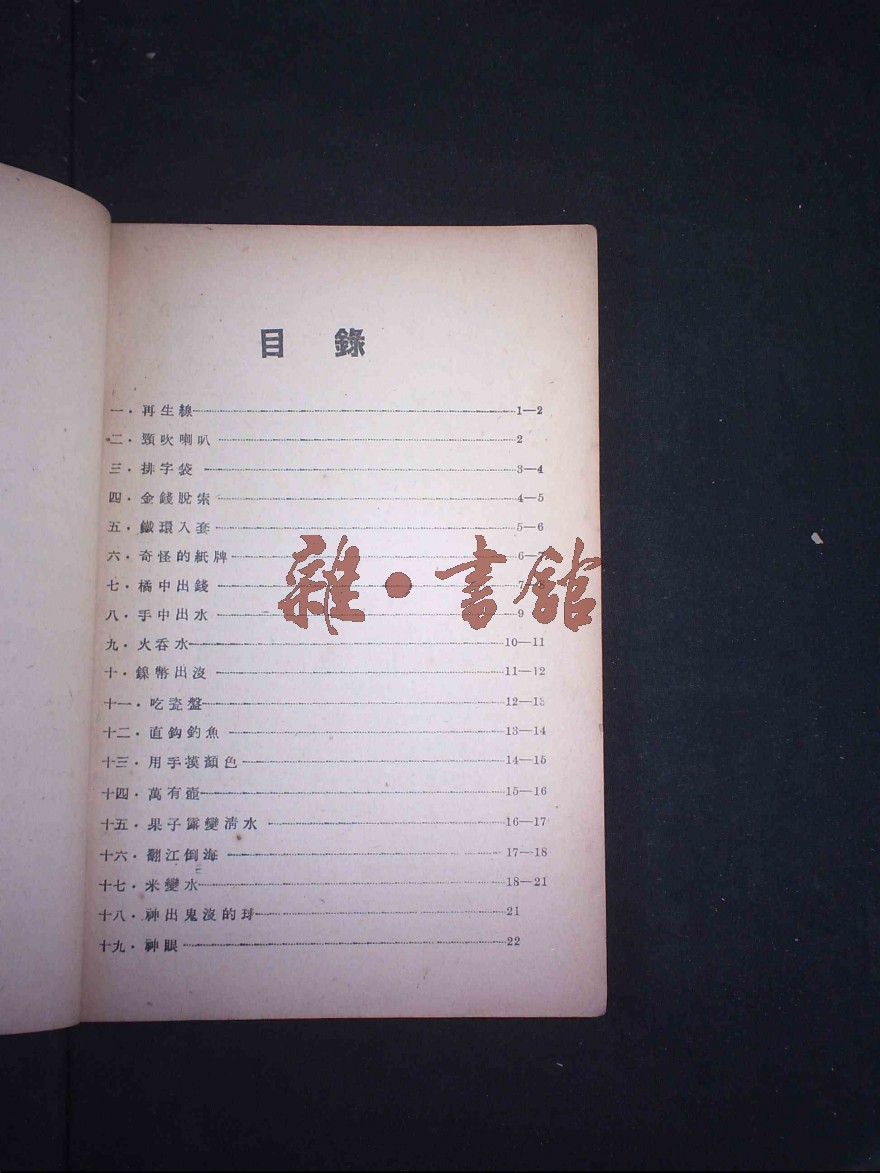 目錄
一·再生線 1—2
二·頸吹喇叭 2
三·排字袋 3—4
四·金錢脫索 4—5
五·鐵環入套 5—6
六·奇怪的紙牌 6—
七·橘中出錢 7—8
八·手中出水 9
九·火吞水 10—11
十·鎳幣出沒 11—12
十一·吃瓷盤 12—13
十二·直鈎釣魚 13—14
十三·用手摸顏色 14—15
十四·萬有壺 15—16
十五·果子露變清水 16—17
十六·翻江倒海 17—18
十七·米變水 18—21
十八·神出鬼沒的球 21
十九·神眼 22
雜·書館